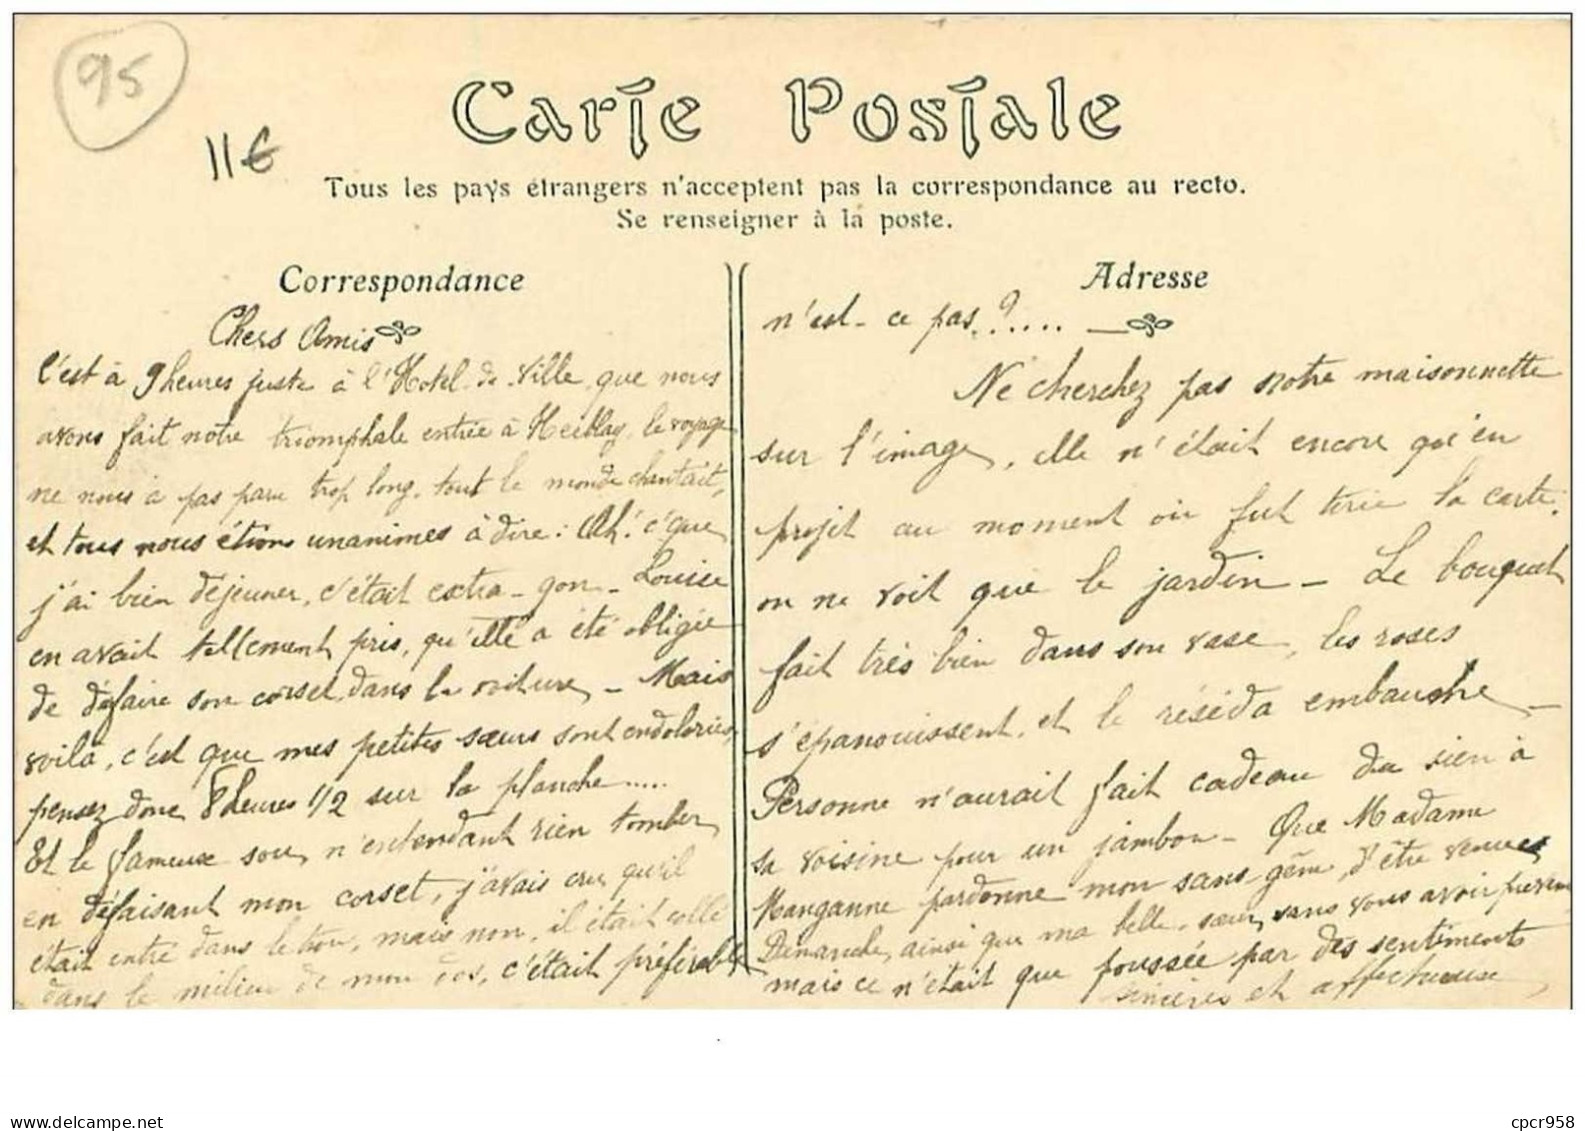 95
11€
Carte Postale
Tous les pays étrangers n'acceptent pas la correspondance au recto.
Se renseigner à la poste.
Correspondance
Chers Amis
C'est à 9 heures juste à l'Hotel-de-Ville, que nous
avons fait notre triomphale entrée à Herblay, le voyage
ne nous à pas paru trop long, tout le monde chantait,
et tous nous étions unanimes à dire : Ah! c'que
j'ai bien déjeuner, c'était extra-gon - Louise
en avait tellement pris, qu'elle a été obligée
de défaire son corset dans la voiture, - Mais
voilà, c'est que mes petites sœurs sont endolories,
pensez donc 8 heures 1/2 sur la planche.....
Et le fameux sou, n'entendant rien tomber
en défaisant mon corset, j'avais cru qu'il
était entré dans le trou, mais non, il était collé
dans le milieu de mon dos, c'était préférable
Adresse
n'est-ce pas ?.....
Ne cherchez pas notre maisonnette
sur l'image, elle n'était encore qu'en
projet au moment où fut tirée la carte;
on ne voit que le jardin - Le bouquet
fait très bien dans son vase, les roses
s'épanouissent, et le réséda embauche -
Personne n'aurait fait cadeau du sien à
sa voisine pour un jambon - Que Madame
Manganne pardonne mon sans gêne, d'être venue
Dimanche, ainsi que ma belle-sœur, sans vous avoir prévenu
mais ce n'était que poussée par des sentiments
sincères et affectueux
delcampe.net
cpcr958